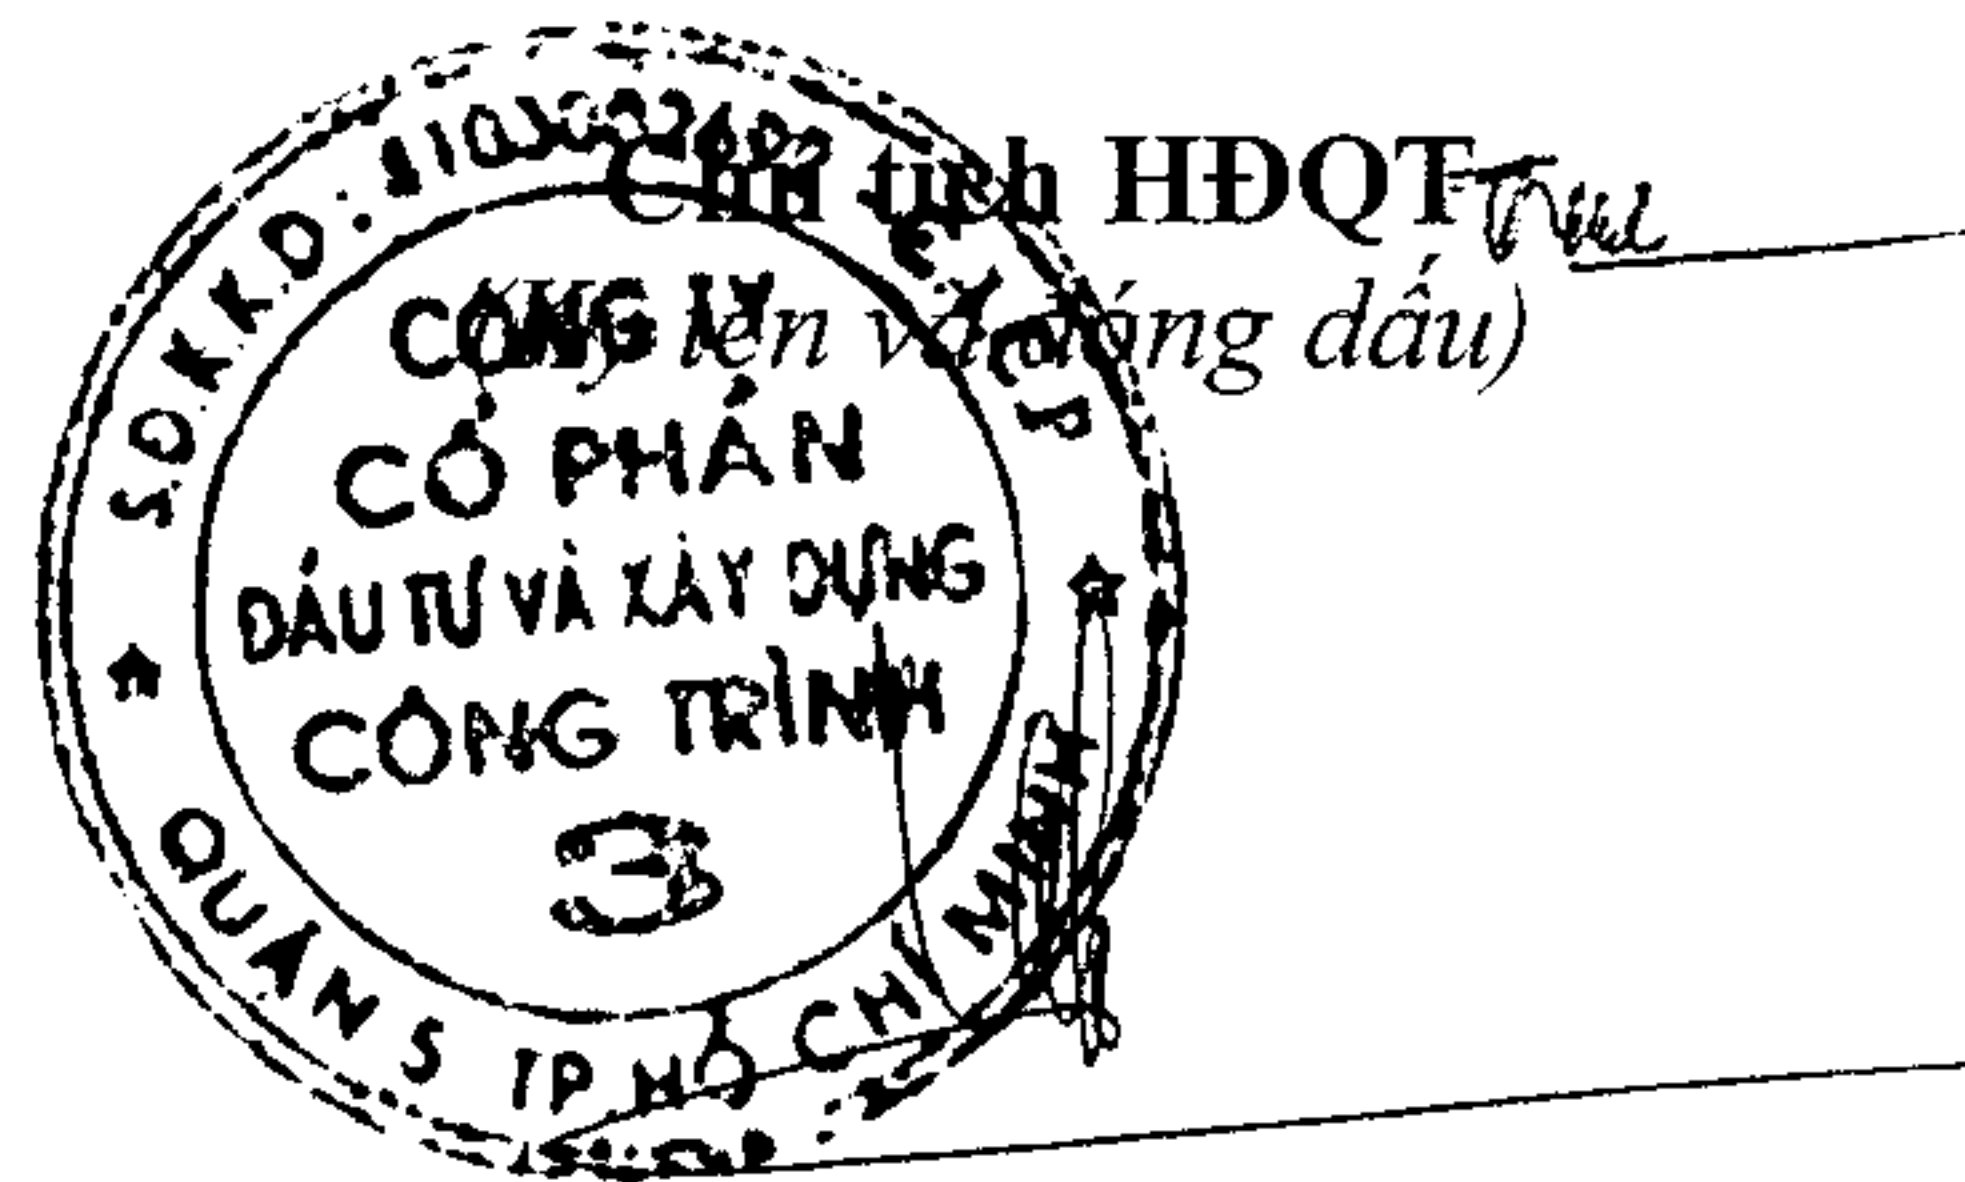 Chủ tịch HĐQT
(Ký tên và đóng dấu)
S.ĐKKD:
CÔNG TY
CỔ PHẦN
ĐẦU TƯ VÀ XÂY DỰNG
CÔNG TRÌNH
3
QUẬN 5 TP HỒ CHÍ MINH